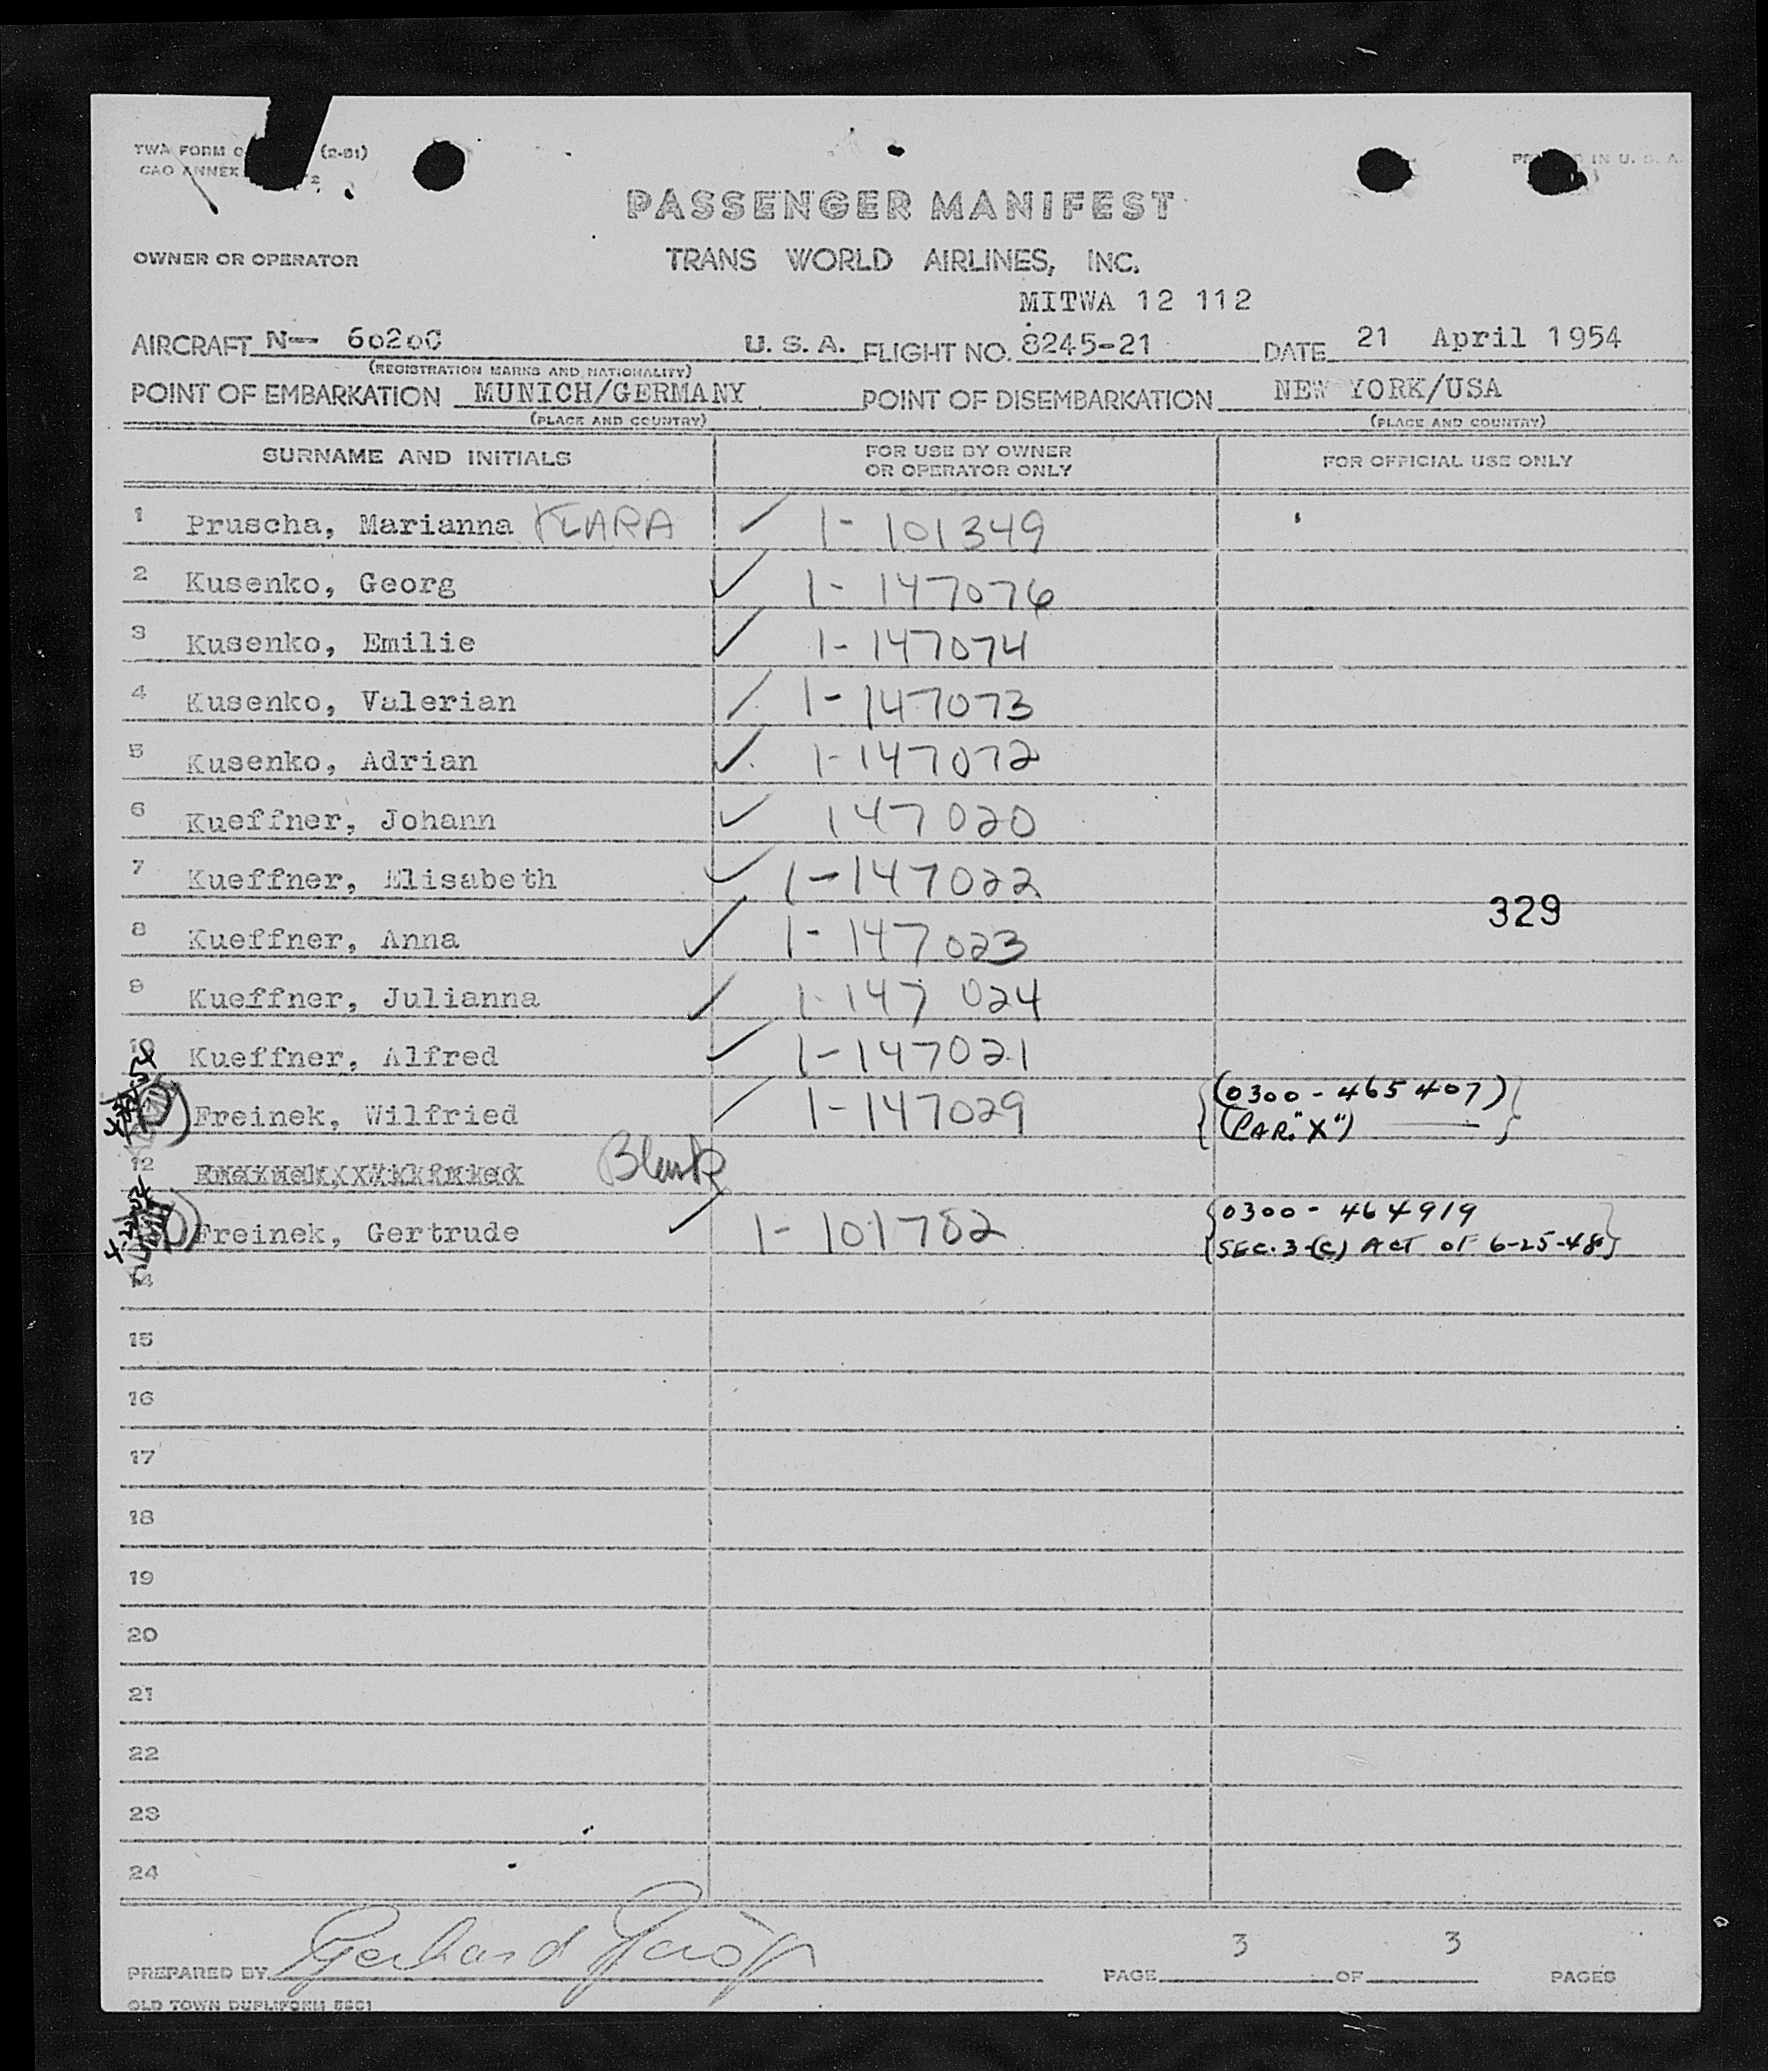 TWA FORM (2-51)
CAO ANNEX
IN U. S. A.
PASSENGER MANIFEST
OWNER OR OPERATOR TRANS WORLD AIRLINES, INC.
MITWA 12 112
AIRCRAFT N-- 6020C U. S. A. FLIGHT NO. 8245-21 DATE 21 April 1954
(REGISTRATION MARKS AND NATIONALITY)
POINT OF EMBARKATION MUNICH/GERMANY POINT OF DISEMBARKATION NEW YORK/USA
(PLACE AND COUNTRY) (PLACE AND COUNTRY)
SURNAME AND INITIALS FOR USE BY OWNER OR OPERATOR ONLY FOR OFFICIAL USE ONLY
1 Pruscha, Marianna KLARA ✓ 1- 101349
2 Kusenko, Georg ✓ 1- 147076
3 Kusenko, Emilie ✓ 1- 147074
4 Kusenko, Valerian ✓ 1- 147073
5 Kusenko, Adrian ✓ 1-147072
6 Kueffner, Johann ✓ 147020
7 Kueffner, Elisabeth ✓ 1-147022
329
8 Kueffner, Anna ✓ 1- 147023
9 Kueffner, Julianna ✓ 1-147 024
10 Kueffner, Alfred ✓ 1-147021
Freinek, Wilfried ✓ 1-147029 (0300-465407)
(PAR. "X")
12 Blank
Freinek, Gertrude ✓ 1- 101782 0300- 464919
SEC. 3-(C) ACT OF 6-25-48
14
15
16
17
18
19
20
21
22
23
24
PREPARED BY Gerhard PAGE 3 OF 3 PAGES
OLD TOWN DUPLIFORM